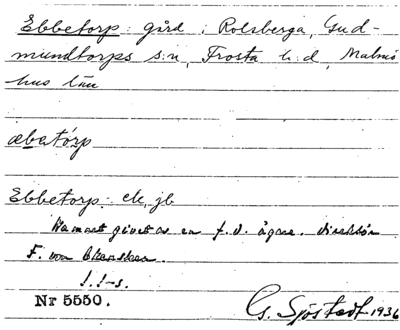 Ebbetorp: gård i Rolsberga, Gud-
mundtorps s:n, Frosta h:d, Malmö
hus län
æbatórp
Ebbetorp: ek, jb
Namnet givet av en f.d. ägare. direktör
F. von
Nr 5550.
G. Sjöstedt 1936